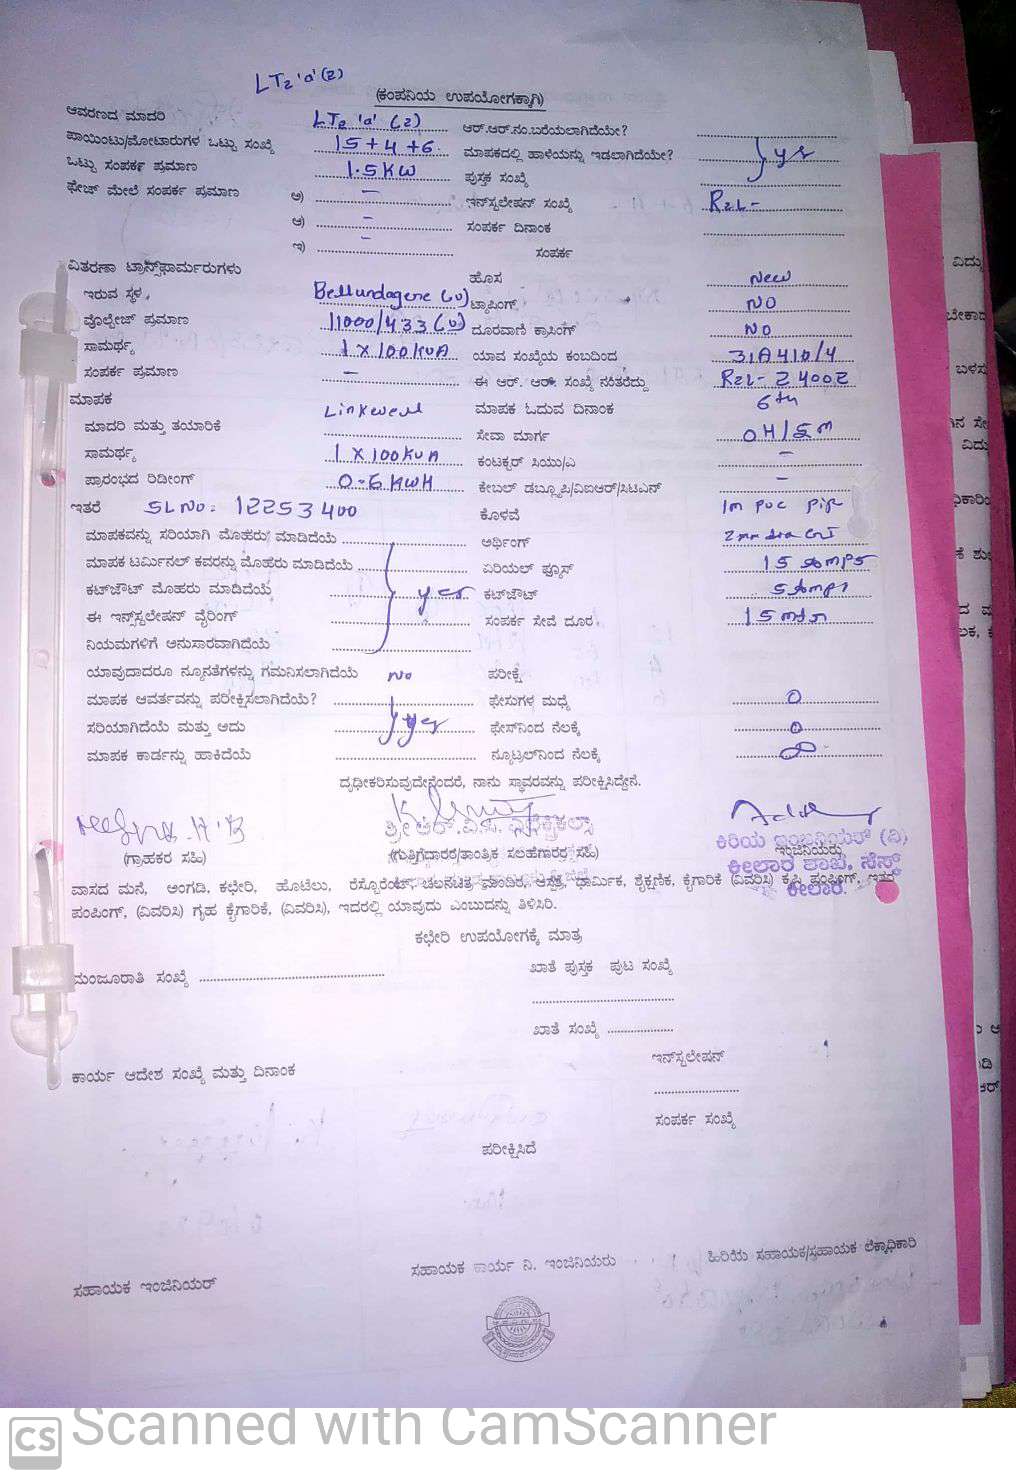 LT2 'a' (2)
(ಕಂಪನಿಯ ಉಪಯೋಗಕ್ಕಾಗಿ)
ಆವರಣದ ಮಾದರಿ LT2 'a' (2) ಆರ್.ಆರ್.ನಂ.ಬರೆಯಲಾಗಿದೆಯೇ?
ಪಾಯಿಂಟು/ಮೋಟಾರುಗಳ ಒಟ್ಟು ಸಂಖ್ಯೆ 15+4+6 ಮಾಪಕದಲ್ಲಿ ಹಾಳೆಯನ್ನು ಇಡಲಾಗಿದೆಯೇ? yes
ಒಟ್ಟು ಸಂಪರ್ಕ ಪ್ರಮಾಣ 1.5KW ಪುಸ್ತಕ ಸಂಖ್ಯೆ
ಫೇಜ್ ಮೇಲೆ ಸಂಪರ್ಕ ಪ್ರಮಾಣ ಅ) – ಇನ್‌ಸ್ಟಲೇಷನ್ ಸಂಖ್ಯೆ R2L-
ಆ) – ಸಂಪರ್ಕ ದಿನಾಂಕ
ಇ) – ಸಂಪರ್ಕ
ವಿತರಣಾ ಟ್ರಾನ್ಸ್‌ಫಾರ್ಮರುಗಳು ಹೊಸ New
ಇರುವ ಸ್ಥಳ Bellundagere (v) ಟ್ಯಾಪಿಂಗ್ NO
ವೋಲ್ಟೇಜ್ ಪ್ರಮಾಣ 11000/433 (v) ದೂರವಾಣಿ ಕ್ರಾಸಿಂಗ್ NO
ಸಾಮರ್ಥ್ಯ 1 X 100KVA ಯಾವ ಸಂಖ್ಯೆಯ ಕಂಬದಿಂದ 31A410/4
ಸಂಪರ್ಕ ಪ್ರಮಾಣ – ಈ ಆರ್. ಆರ್. ಸಂಖ್ಯೆ ನಂತರದ್ದು R2L- 24002
ಮಾಪಕ ಮಾಪಕ ಓದುವ ದಿನಾಂಕ 6th
ಮಾದರಿ ಮತ್ತು ತಯಾರಿಕೆ Linkwell ಸೇವಾ ಮಾರ್ಗ OH/
ಸಾಮರ್ಥ್ಯ 1 X 100KVA ಕಂಟಕ್ಟರ್ ಸಿಯು/ಎ –
ಪ್ರಾರಂಭದ ರಿಡೀಂಗ್ 0-6 KWH ಕೇಬಲ್ ಡಬ್ಲೂಪಿ/ವಿಐಆರ್/ಸಿಟಿಎಸ್ –
ಇತರೆ SL NO: 12253400 ಕೊಳವೆ 1m PVC pipe
ಮಾಪಕವನ್ನು ಸರಿಯಾಗಿ ಮೊಹರು ಮಾಡಿದೆಯೆ ಅರ್ಥಿಂಗ್ 2mm dia
ಮಾಪಕ ಟರ್ಮಿನಲ್ ಕವರನ್ನು ಮೊಹರು ಮಾಡಿದೆಯೆ ಏರಿಯಲ್ ಫ್ಯೂಸ್ 15 amps
ಕಟ್‌ಔಟ್ ಮೊಹರು ಮಾಡಿದೆಯೆ yes ಕಟ್‌ಔಟ್ 5 amps
ಈ ಇನ್ಸ್‌ಸ್ಟಲೇಷನ್ ವೈರಿಂಗ್ ಸಂಪರ್ಕ ಸೇವೆ ದೂರ 15 mtrs
ನಿಯಮಗಳಿಗೆ ಅನುಸಾರವಾಗಿದೆಯೆ
ಯಾವುದಾದರೂ ನ್ಯೂನತೆಗಳನ್ನು ಗಮನಿಸಲಾಗಿದೆಯೆ No ಪರೀಕ್ಷೆ
ಮಾಪಕ ಆವರ್ತವನ್ನು ಪರೀಕ್ಷಿಸಲಾಗಿದೆಯೆ? ಫೇಸುಗಳ ಮಧ್ಯೆ 0
ಸರಿಯಾಗಿದೆಯೆ ಮತ್ತು ಅದು yes ಫೇಸ್‌ನಿಂದ ನೆಲಕ್ಕೆ 0
ಮಾಪಕ ಕಾರ್ಡನ್ನು ಹಾಕಿದೆಯೆ ನ್ಯೂಟ್ರಲ್‌ನಿಂದ ನೆಲಕ್ಕೆ
ದೃಢೀಕರಿಸುವುದೇನೆಂದರೆ, ನಾನು ಸ್ಥಾವರವನ್ನು ಪರೀಕ್ಷಿಸಿದ್ದೇನೆ.
ಕಿರಿಯ ಇಂಜಿನಿಯರ್ (ವಿ)
(ಗ್ರಾಹಕರ ಸಹಿ) (ಗುತ್ತಿಗೆದಾರರ/ತಾಂತ್ರಿಕ ಸಲಹೆಗಾರರ ಸಹಿ) ಇಂಜಿನಿಯರು
ಕೀಲಾರ ಶಾಖೆ, ಸೆಸ್ಕ್
ಕೀಲಾರ.
ವಾಸದ ಮನೆ, ಅಂಗಡಿ, ಕಛೇರಿ, ಹೊಟೆಲು, ರೆಸ್ಟೊರೆಂಟ್, ಚಲನಚಿತ್ರ ಮಂದಿರ, ಆಸ್ಪತ್ರೆ, ಧಾರ್ಮಿಕ, ಶೈಕ್ಷಣಿಕ, ಕೈಗಾರಿಕೆ (ವಿವರಿಸಿ) ಕೃಷಿ ಪಂಪಿಂಗ್, ಇತರೆ
ಪಂಪಿಂಗ್, (ವಿವರಿಸಿ) ಗೃಹ ಕೈಗಾರಿಕೆ, (ವಿವರಿಸಿ), ಇದರಲ್ಲಿ ಯಾವುದು ಎಂಬುದನ್ನು ತಿಳಿಸಿರಿ.
ಕಛೇರಿ ಉಪಯೋಗಕ್ಕೆ ಮಾತ್ರ
ಮಂಜೂರಾತಿ ಸಂಖ್ಯೆ ಖಾತೆ ಪುಸ್ತಕ ಪುಟ ಸಂಖ್ಯೆ
ಖಾತೆ ಸಂಖ್ಯೆ
ಇನ್‌ಸ್ಟಲೇಷನ್
ಕಾರ್ಯ ಆದೇಶ ಸಂಖ್ಯೆ ಮತ್ತು ದಿನಾಂಕ
ಸಂಪರ್ಕ ಸಂಖ್ಯೆ
ಪರೀಕ್ಷಿಸಿದೆ
ಸಹಾಯಕ ಇಂಜಿನಿಯರ್ ಸಹಾಯಕ ಕಾರ್ಯ ನಿ. ಇಂಜಿನಿಯರು ಹಿರಿಯ ಸಹಾಯಕ/ಸಹಾಯಕ ಲೆಕ್ಕಾಧಿಕಾರಿ
CS Scanned with CamScanner